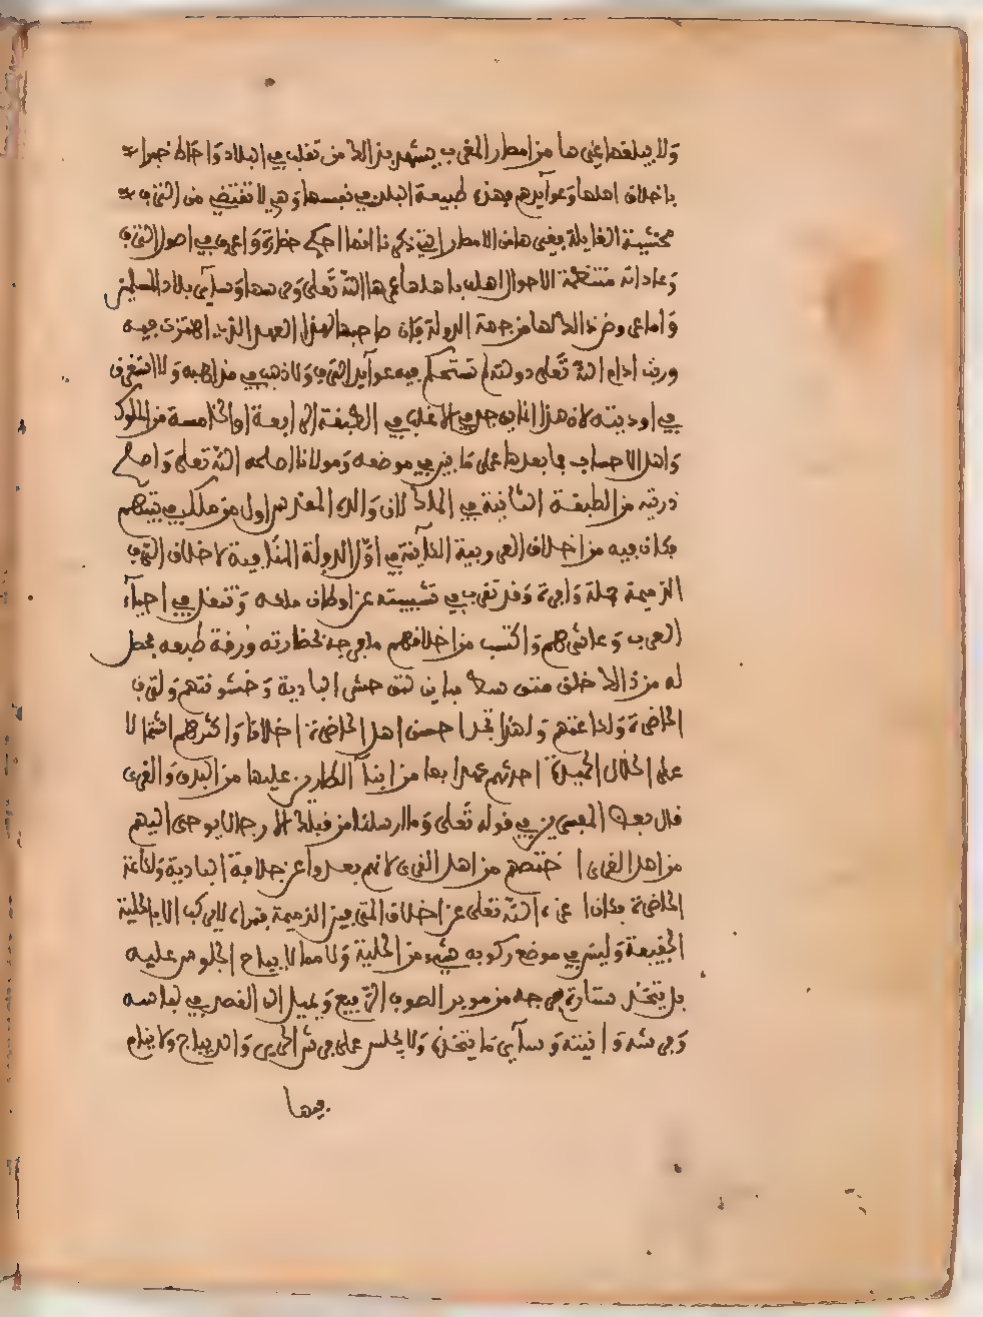 ولا يبلغها غيرها من امصار المغرب يشهد بذالك من تغلب في البلاد واحاط خبرا
باخلاق اهلها وعوآيدهم فهذه طبيعة البلد في نفسها وهي لا تقتضي من الترف
مخشية الغايلة بغيرها من الامصار التي ذكرنا انها احكم حضارة واعرف في اصول الترف
وعاداته منتظمة الاحوال اهله باهلها عمرها الله تعلى وحرسها وسآير بلاد المسلمين
واما عروض ذالك لها من جهة الدولة فان صاحبها لهذا العهد الذي اهتزت فيه
وربت ادام الله تعلى دولته لم تستحكم فيه عوآيد الترف ولا ذهب في مذاهبه ولا استغرق
في اوديته لان هذا انما يوجد في الاغلب في الطبقة الرابعة او الخامسة من الملوك
واهل الاحساب فما بعدها على ما بين في موضعه ومولانا اصلحه الله تعلى واصلح
ذريته من الطبقة الثانية في الملك لان والده المقدس اول من ملك في بيتهم
فكان فيه من اخلاق العروبية الكآينة في اوّل الدولة المنافية لاخلاق الترف
الذميمة جملة وافرة وقد تغرب في شبيبته عن اوطان ملكه وتنقل في احيآء
العرب وعاشرهم واكتسب من اخلاقهم ما مزجه بحضارته ورقة طبعه فحصل
له من ذالك خلق متوسط مباين لتوحش البادية وخشونتهم ولترف
الحاضرة ولدا عتهم ولهذا تجد احسن اهل الحاضرة اخلاقا واكثرهم اشتمالا
على الخلال الحميدة احدثهم عهدا بها من ابنآء الطارين عليها من البدو والقرى
قال بعض المفسرين في قوله تعلى وما ارسلنا من قبلك الا رجالا يوحى اليهم
من اهل القرى اختصهم من اهل القرى لانهم بعدوا عن جلافة البادية ولكاعة
الحاضرة فكان اعزه الله تعلى عن اخلاق المترفين الذميمة بمعزل لا يركب الا بالحلية
الخفيفة وليس في موضع ركوبه شيء من الحلية ولا مما لا يباح الجلوس عليه
بل يتخذ ستارة سرجه من موبر الصوف الرفيع ويميل الى القصد في لباسه
وفرشه وانيته وسآير ما يتخذه ولا يجلس على فرش الحرير والديباج ولا ينام
فيها